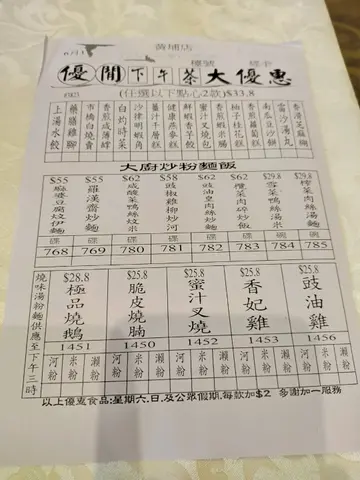 黃埔店
6月1
檯號
經手
優閒下午茶大優惠
(任選以下點心2款)$33.8
香滑芝麻糊
雷沙湯丸
南瓜豆沙餅
香煎蘿蔔糕
柚子桂花糕
香煎明米腸
蜜汁叉燒包
鮮蝦香芋餃
健康燕麥糕
薑汁千層糕
沙律明蝦角
白灼時菜
香煎咸薄罉
市橋白燒賣
藥膳雞腳
上湯水餃
大廚炒粉麵飯
$55 $55 $62 $58 $62 $62 $29.8 $29.8
麻婆豆腐炆伊麵
羅漢齋炒麵
咸酸菜鴨絲炆米
豉椒雞柳炒河
豉油皇肉絲炒麵
欖菜肉碎炒飯
雪菜鴨絲湯米
榨菜肉絲湯麵
碟 碟 碟 碟 碟 碟 碗 碗
768 769 780 781 782 783 784 785
燒味湯粉麵供應至下午三時
$28.8 $25.8 $25.8 $25.8 $25.8
極品燒鵝
脆皮燒腩
蜜汁叉燒
香妃雞
豉油雞
1451 1450 1452 1453 1456
河粉 米粉 瀨粉 河粉 米粉 瀨粉 河粉 米粉 瀨粉 河粉 米粉 瀨粉 河粉 米粉 瀨粉
以上優惠食品:星期六.日,及公眾假期,每款加$2 多謝加一服務